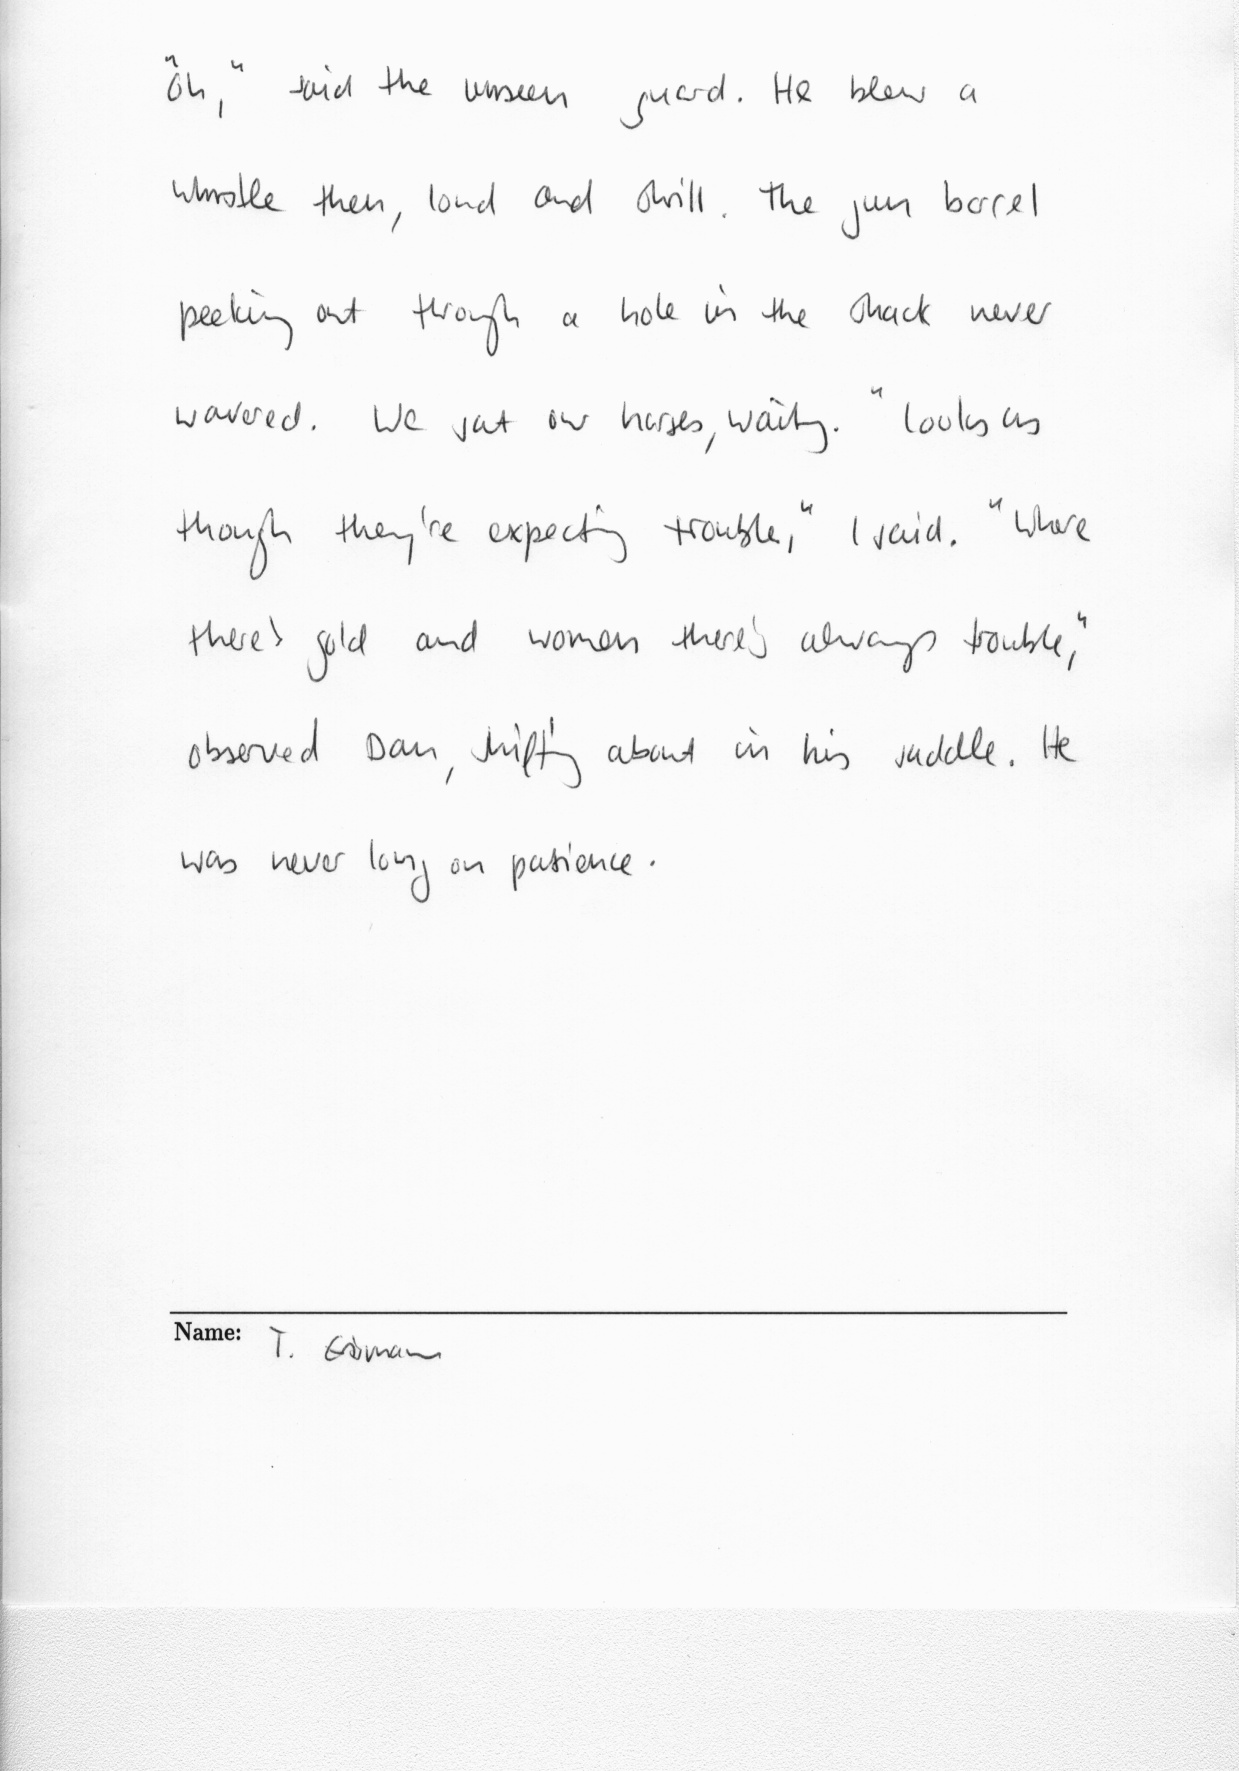 "Oh," said the unseen guard. He blew a
whistle then, loud and shrill. The gun barrel
peeking out through a hole in the shack never
wavered. We sat our horses, waiting. "Looks as
though they're expecting trouble," I said. "Where
there's gold and women there's always trouble,"
observed Dan, shifting about in his saddle. He
was never long on patience.
Name: T.